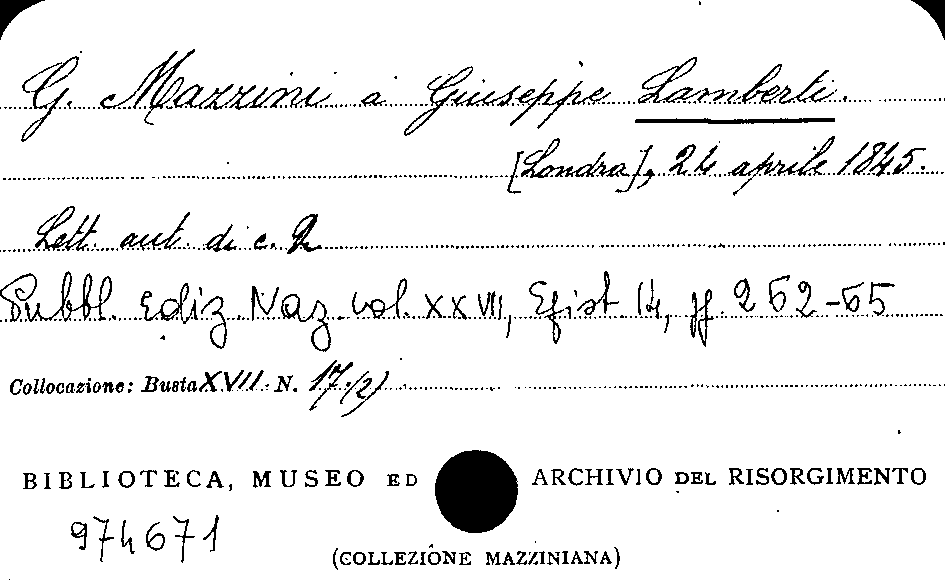 G. Mazzini a Giuseppe Lamberti.
[Londra], 24 aprile 1845.
Lett. aut. di c. 2
Pubbl. Ediz. Naz. vol. XXVII, Epist. 14, pp. 262-65
Collocazione: Busta XVII. N. 17/2)
BIBLIOTECA, MUSEO ED ARCHIVIO DEL RISORGIMENTO
974671
(COLLEZIONE MAZZINIANA)